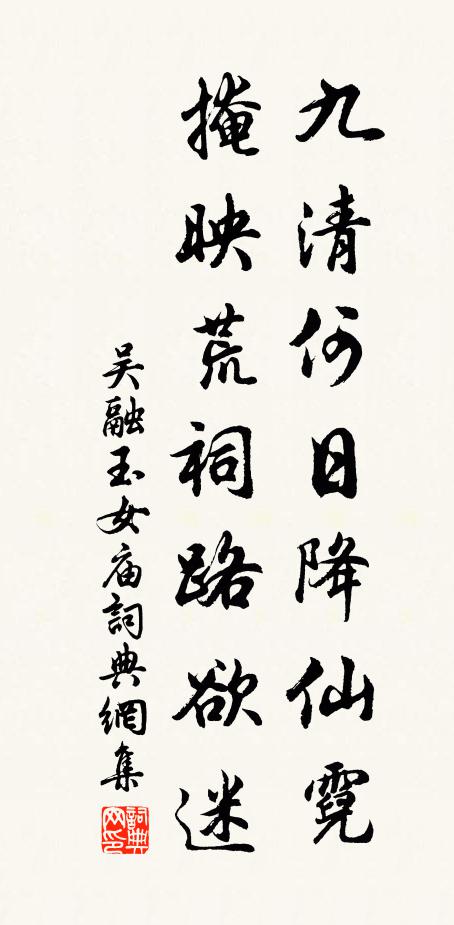 九清何日降仙霓
掩映荒祠路欲迷
吴融玉女庙詞典網集
詞典网印